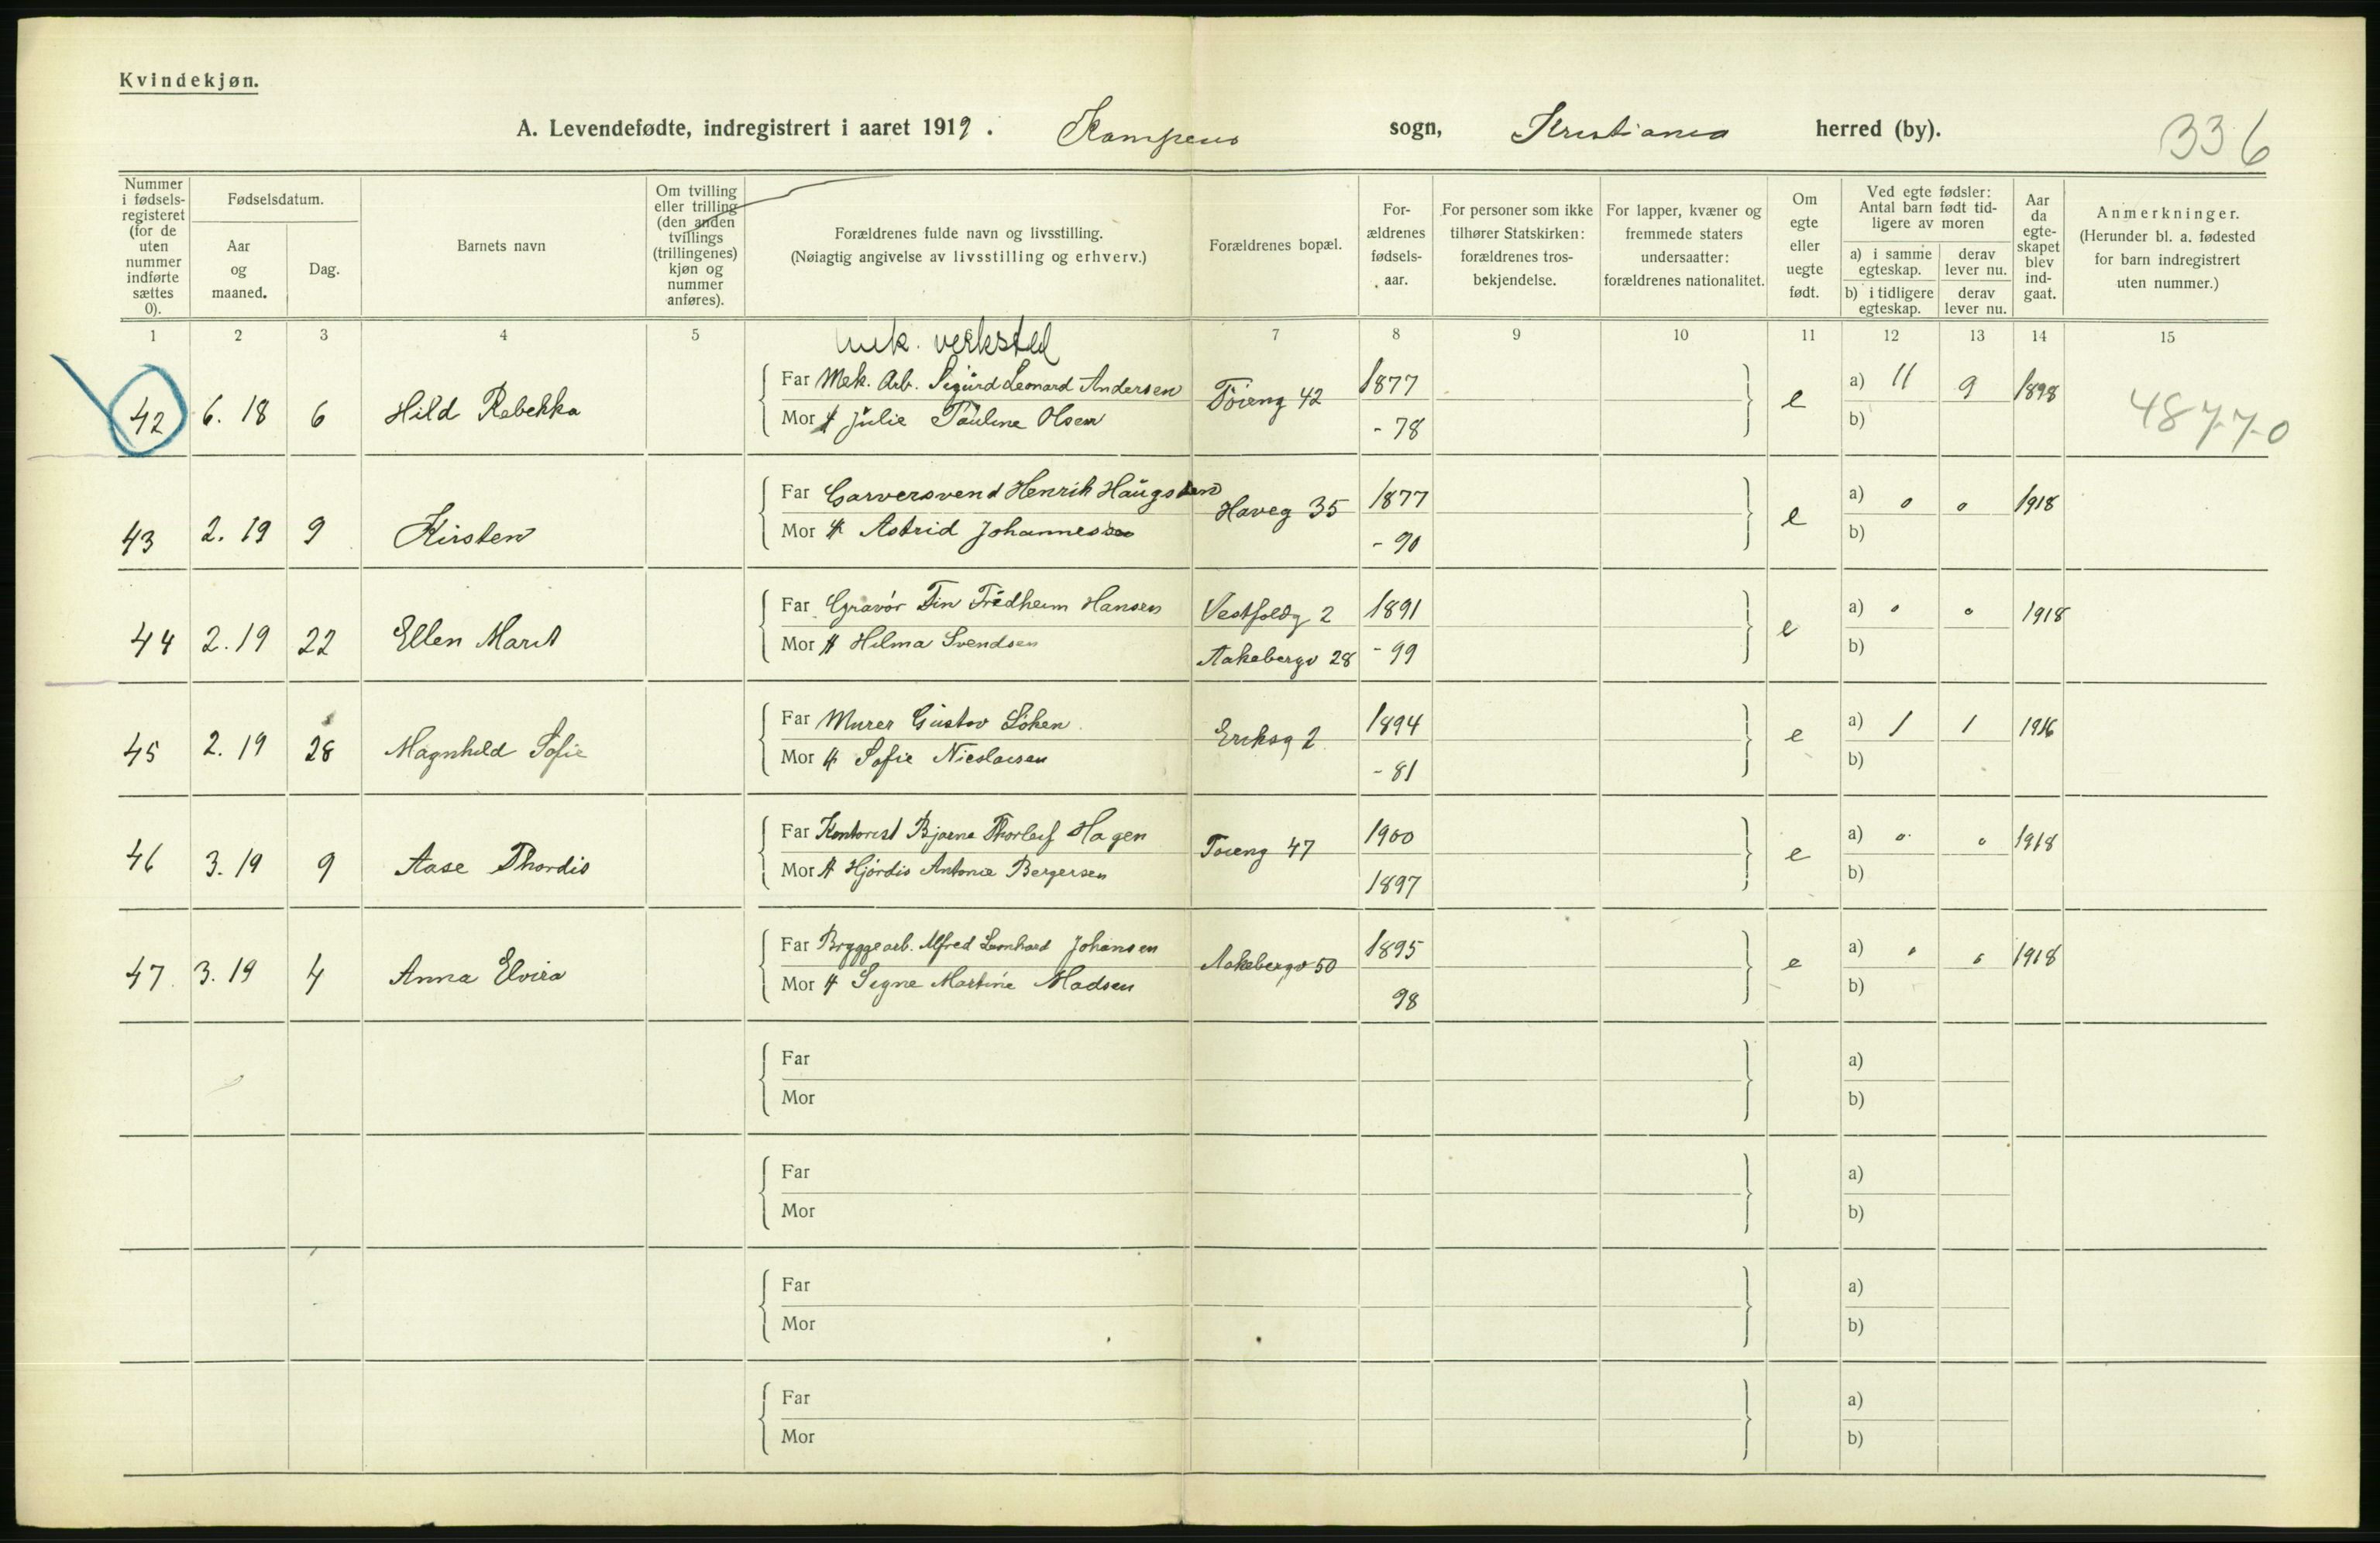 Kvindekjøn.
A. Levendefødte, indregistrert i aaret 1919. Kampens sogn, Kristiania herred (by).
336
Nummer i fødsels-registeret (for de uten nummer indførte sættes 0).
Fødselsdatum.
Aar og maaned.
Dag.
Barnets navn
Om tvilling eller trilling (den anden tvillings (trillingenes) kjøn og nummer anføres).
Forældrenes fulde navn og livsstilling.
(Nøiagtig angivelse av livsstilling og erhverv.)
Forældrenes bopæl.
For-ældrenes fødsels-aar.
For personer som ikke tilhører Statskirken: forældrenes tros-bekjendelse.
For lapper, kvæner og fremmede staters undersaatter: forældrenes nationalitet.
Om egte eller uegte født.
Ved egte fødsler: Antal barn født tid-ligere av moren
a) i samme egteskap.
derav lever nu.
b) i tidligere egteskap.
derav lever nu.
Aar da egte-skapet blev ind-gaat.
Anmerkninger.
(Herunder bl. a. fødested for barn indregistrert uten nummer.)
1 2 3 4 5 7 8 9 10 11 12 13 14 15
mek. verksted
42 6. 18 6 Hild Rebekka Far Mek. Arb. Sigurd Leonard Andersen Töieng 42 1877 e a) 11 9 1898
Mor Julie Pauline Olsen - 78 b)
48770
43 2. 19 9 Kirsten Far Garversvend Henrik Haugsten Haveg 35 1877 e a) 0 0 1918
Mor Astrid Johannessen - 90 b)
44 2. 19 22 Ellen Marit Far Gravör Fin Fredheim Hansen Vestfoldg 2 1891 e a) 0 0 1918
Mor Hilma Svendsen Aakebergv 28 - 99 b)
45 2. 19 28 Magnhild Sofie Far Murer Gustav Löken Eriksg 2 1894 e a) 1 1 1916
Mor Sofie Nicolaisen - 81 b)
46 3. 19 9 Aase Thordis Far Kontorist Bjarne Thorleif Hagen Toieng 47 1900 e a) 0 0 1918
Mor Hjördis Antonie Bergersen 1897 b)
47 3. 19 4 Anna Elvira Far Bryggearb. Alfred Leonhard Johansen Aakebergv 50 1895 e a) 0 0 1918
Mor Signe Martine Madsen 98 b)
Far a)
Mor b)
Far a)
Mor b)
Far a)
Mor b)
Far a)
Mor b)